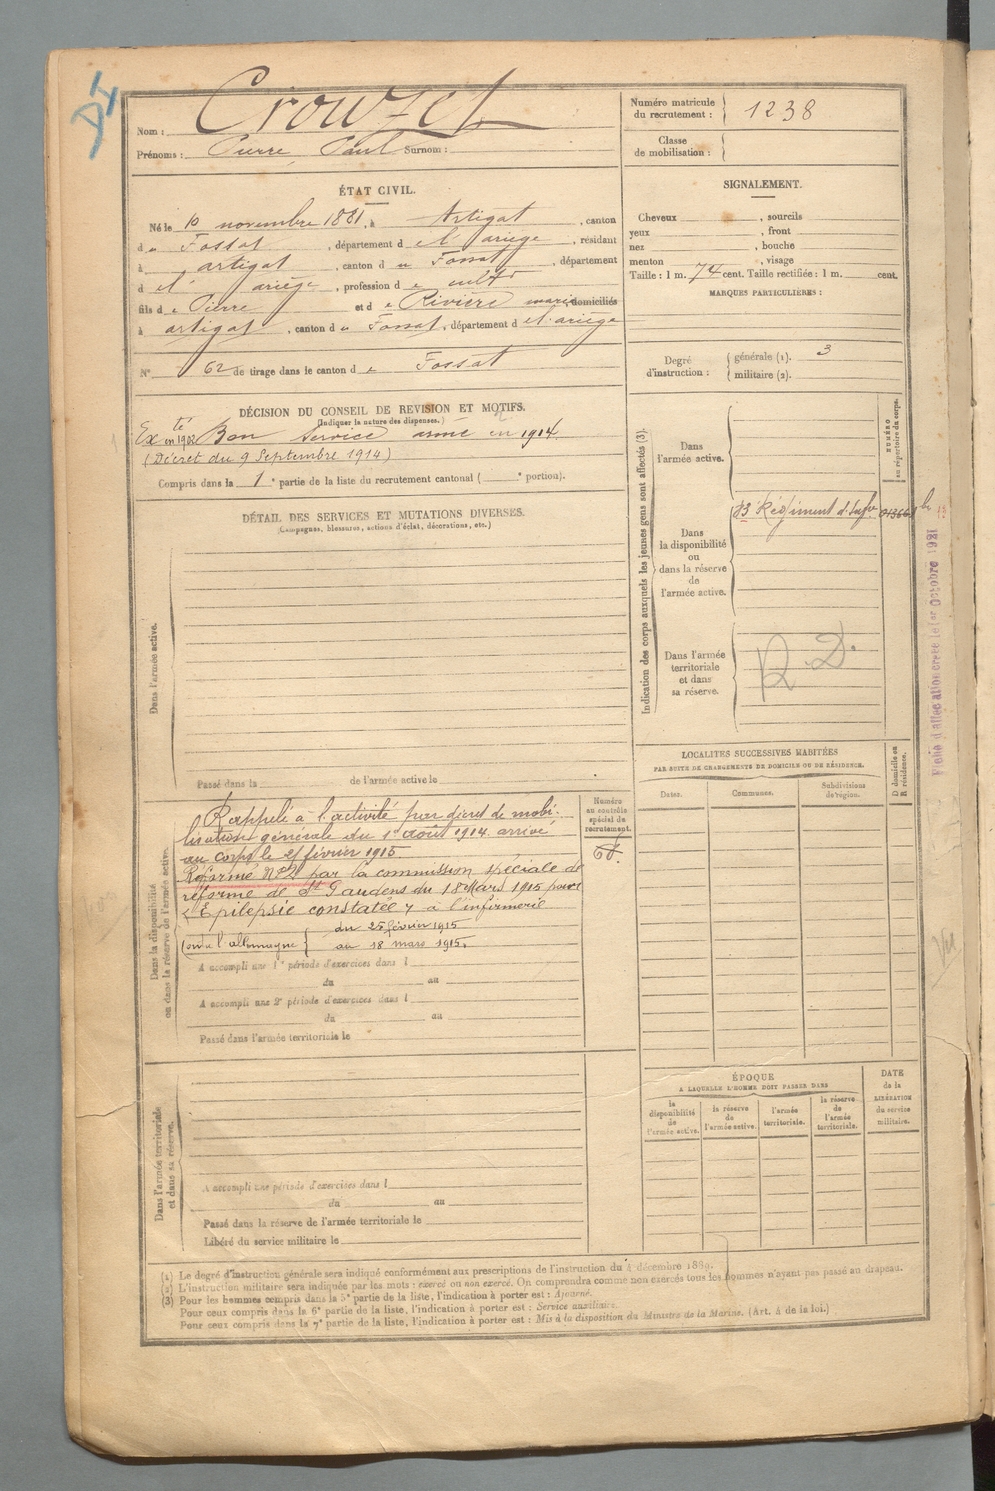 D I
Nom : Crouzet
Prénoms : Pierre Paul Surnom :
Numéro matricule du recrutement : 1238
Classe de mobilisation :
ÉTAT CIVIL.
Né le 10 novembre 1881, à Artigat, canton
d u Fossat, département d e l'ariège, résidant
à artigat, canton d u Fossat, département
d e l' ariège, profession d e cult r
fils d e Pierre et d e Rivière marie domiciliés
à artigat, canton d u Fossat, département d e l'ariège
N° 62 de tirage dans le canton d u Fossat
SIGNALEMENT.
Cheveux , sourcils
yeux , front
nez , bouche
menton , visage
Taille : 1 m. 74 cent. Taille rectifiée : 1 m. cent.
MARQUES PARTICULIÈRES :
Degré d'instruction : générale (1). 3
militaire (2).
DÉCISION DU CONSEIL DE REVISION ET MOTIFS.
(Indiquer la nature des dispenses.)
Ex té en 1902 Bon service armé en 1914.
(Décret du 9 Septembre 1914)
Compris dans la 1 e partie de la liste du recrutement cantonal ( e portion).
DÉTAIL DES SERVICES ET MUTATIONS DIVERSES.
(Campagnes, blessures, actions d'éclat, décorations, etc.)
Dans l'armée active.
Passé dans la de l'armée active le
Indication des corps auxquels les jeunes gens sont affectés (3).
NUMÉRO au répertoire du corps.
Dans l'armée active.
Dans la disponibilité ou dans la réserve de l'armée active.
83 Régiment d'Infie
Dans l'armée territoriale et dans sa réserve.
R. D.
Fiche d'affectation créée le 1er Octobre 1921
Vu
LOCALITÉS SUCCESSIVES HABITÉES
PAR SUITE DE CHANGEMENTS DE DOMICILE OU DE RÉSIDENCE.
Dates. Communes. Subdivisions de région. D domicile ou R résidence.
Dans la disponibilité ou dans la réserve de l'armée active.
Numéro au contrôle spécial de recrutement.
Rappelé à l'activité par décret de mobi-
lisation générale du 1er août 1914. arrivé
au corps le 21 février 1915
Réformé N°2 par la commission spéciale de
réforme de St Gaudens du 18 Mars 1915 pour
« Epilepsie constatée » à l'infirmerie
Contre l'allemagne du 25 février 1915
au 18 mars 1915.
A accompli une 1re période d'exercices dans l
du au
A accompli une 2e période d'exercices dans l
du au
Passé dans l'armée territoriale le
Dans l'armée territoriale et dans sa réserve.
A accompli une période d'exercices dans l
du au
Passé dans la réserve de l'armée territoriale le
Libéré du service militaire le
ÉPOQUE
A LAQUELLE L'HOMME DOIT PASSER DANS
la disponibilité de l'armée active. la réserve de l'armée active. l'armée territoriale. la réserve de l'armée territoriale.
DATE de la LIBÉRATION du service militaire.
(1) Le degré d'instruction générale sera indiqué conformément aux prescriptions de l'instruction du 4 décembre 1889.
(2) L'instruction militaire sera indiquée par les mots : exercé ou non exercé. On comprendra comme non exercés tous les hommes n'ayant pas passé au drapeau.
(3) Pour les hommes compris dans la 5e partie de la liste, l'indication à porter est : Ajourné.
Pour ceux compris dans la 6e partie de la liste, l'indication à porter est : Service auxiliaire.
Pour ceux compris dans la 7e partie de la liste, l'indication à porter est : Mis à la disposition du Ministre de la Marine. (Art. 4 de la loi.)